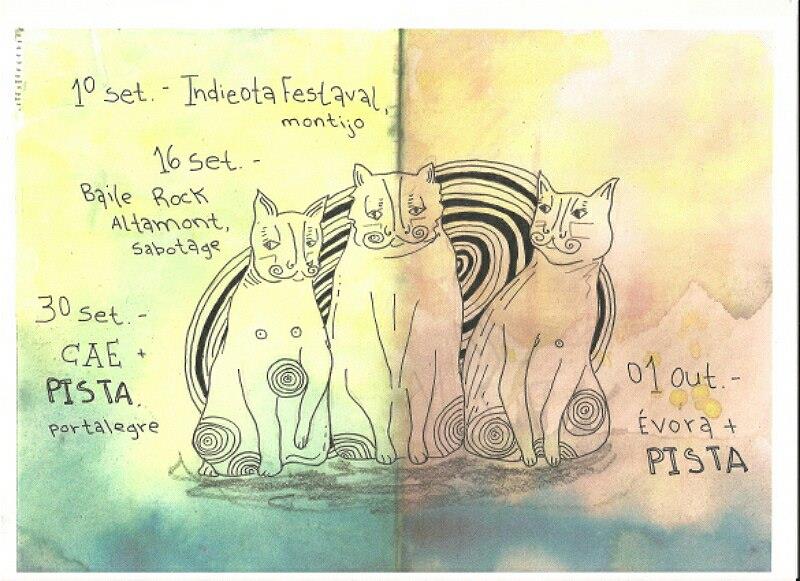 1º set. - Indieota Festaval,
montijo
16 set. -
Baile Rock
Altamont,
sabotage
30 set. -
CAE +
PISTA.
portalegre
01 out. -
Évora +
PISTA